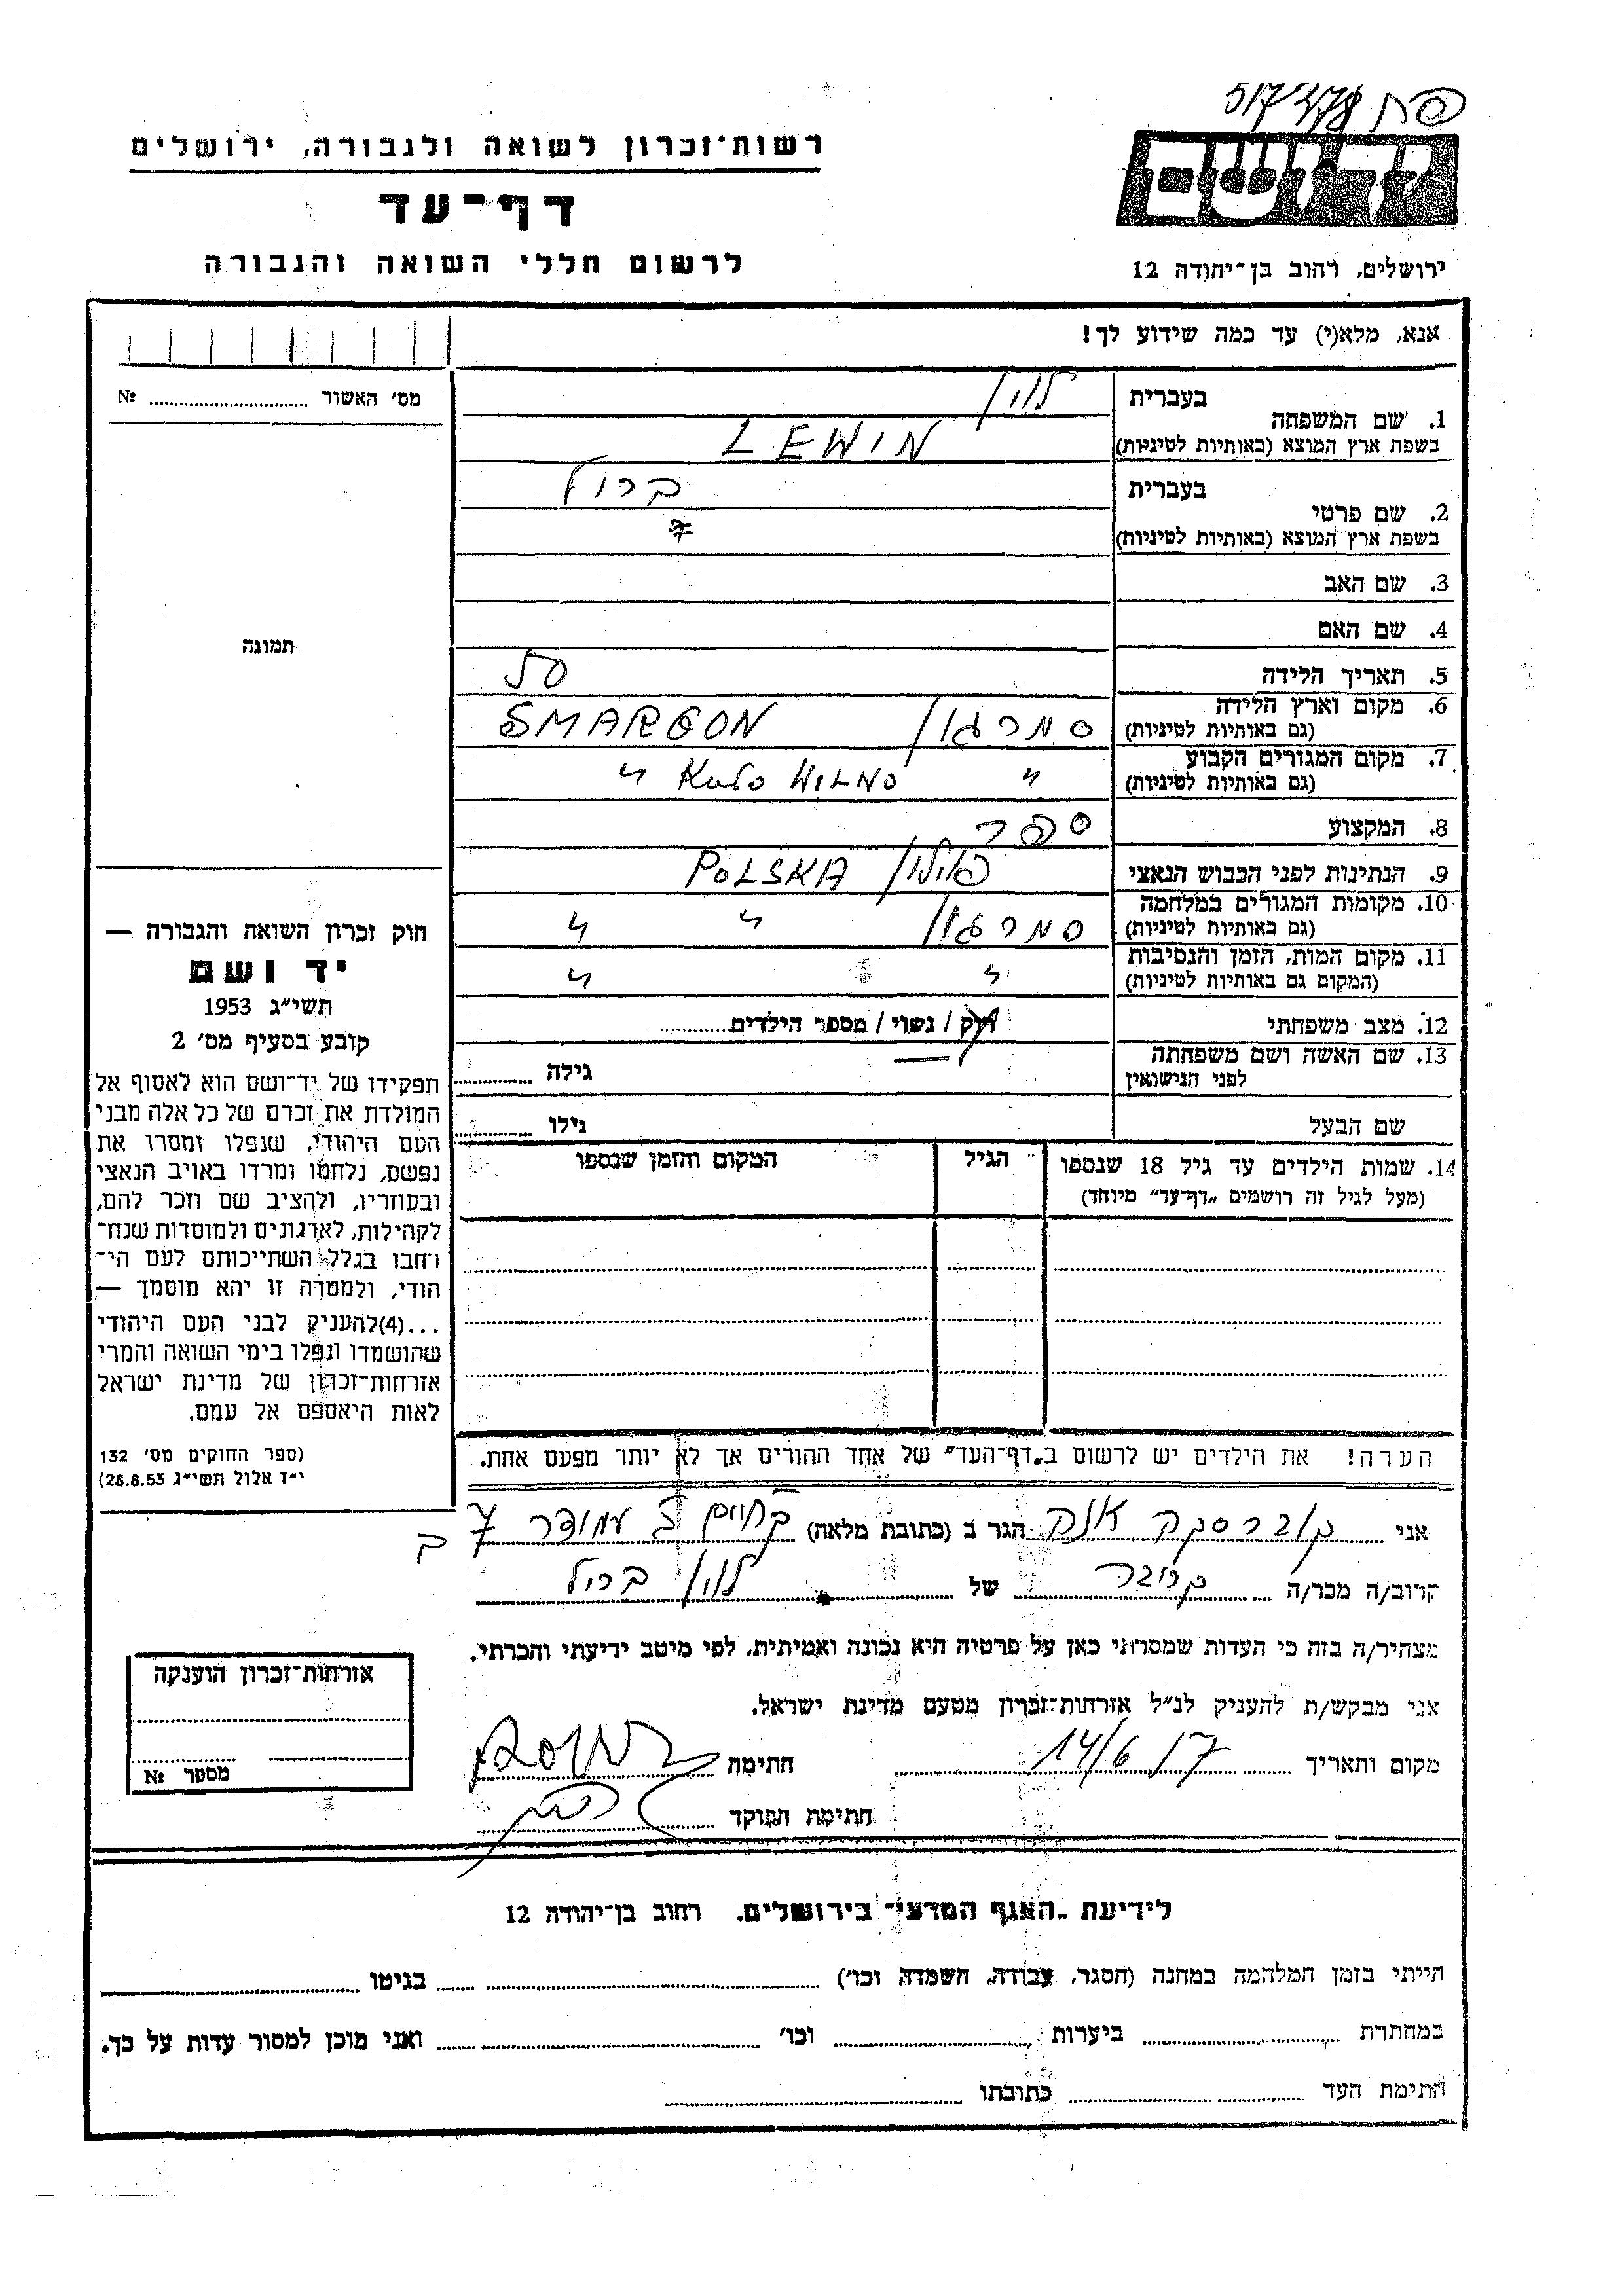 רשות־זכרון לשואה ולגבורה, ירושלים
דף־עד
לרשום חללי השואה והגבורה
יד ושם
ירושלים, רחוב בן־יהודה 12
אנא, מלא(י) עד כמה שידוע לך!
מס׳ האשור № ........
תמונה
בעברית לוין
1. שם המשפחה
בשפת ארץ המוצא (באותיות לטיניות) LEWIN
בעברית
2. שם פרטי
בשפת ארץ המוצא (באותיות לטיניות)
3. שם האב
4. שם האם
5. תאריך הלידה 50
6. מקום וארץ הלידה סמרגון SMARGON
(גם באותיות לטיניות)
7. מקום המגורים הקבוע " WILNO "
(גם באותיות לטיניות)
8. המקצוע ספר
9. הנתינות לפני הכבוש הנאצי פולין POLSKA
10. מקומות המגורים במלחמה סמרגון " "
(גם באותיות לטיניות)
11. מקום המות, הזמן והנסיבות " "
(המקום גם באותיות לטיניות)
12. מצב משפחתי רווק / נשוי / מספר הילדים........
13. שם האשה ושם משפחתה
לפני הנישואין גילה ........
שם הבעל גילו ........
14. שמות הילדים עד גיל 18 שנספו הגיל המקום והזמן שנספו
(מעל לגיל זה רושמים „דף־עד” מיוחד)
הערה! את הילדים יש לרשום ב„דף־העד” של אחד ההורים אך לא יותר מפעם אחת.
חוק זכרון השואה והגבורה —
יד ושם
תשי״ג 1953
קובע בסעיף מס׳ 2
תפקידו של יד־ושם הוא לאסוף אל
המולדת את זכרם של כל אלה מבני
העם היהודי, שנפלו ומסרו את
נפשם, נלחמו ומרדו באויב הנאצי
ובעוזריו, ולהציב שם וזכר להם,
לקהילות, לארגונים ולמוסדות שנח־
רחבו בגלל השתייכותם לעם הי־
הודי, ולמטרה זו יהא מוסמך —
...(4)להעניק לבני העם היהודי
שהושמדו ונפלו בימי השואה והמרי
אזרחות־זכרון של מדינת ישראל
לאות היאספם אל עמם.
(ספר החוקים מס׳ 132
י״ז אלול תשי״ג 28.8.53)
אני הגר ב (כתובת מלאה)
קרוב/ה מכר/ה של לוין
מצהיר/ה בזה כי העדות שמסרתי כאן על פרטיה היא נכונה ואמיתית, לפי מיטב ידיעתי והכרתי.
אני מבקש/ת להעניק לנ״ל אזרחות־זכרון מטעם מדינת ישראל.
מקום ותאריך 14/6 חתימה
חתימת הפוקד
אזרחות־זכרון הוענקה
מספר №
לידיעת „האגף המדעי” בירושלים, רחוב בן־יהודה 12
הייתי בזמן המלחמה במחנה (הסגר, עבודה, השמדה וכו׳) ........ בגיטו ........
במחתרת ........ ביערות ........ וכו׳ ........ ואני מוכן למסור עדות על כך.
חתימת העד ........ כתובתו ........